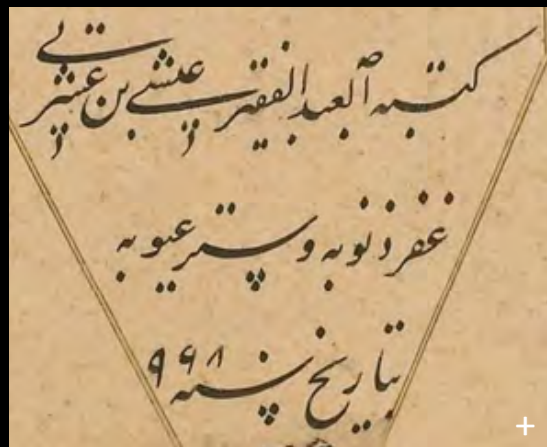 کتبه العبد الفقیر عیشی بن عشرتی
غفر ذنوبه و ستر عیوبه
بتاریخ سنه ۹۶۸